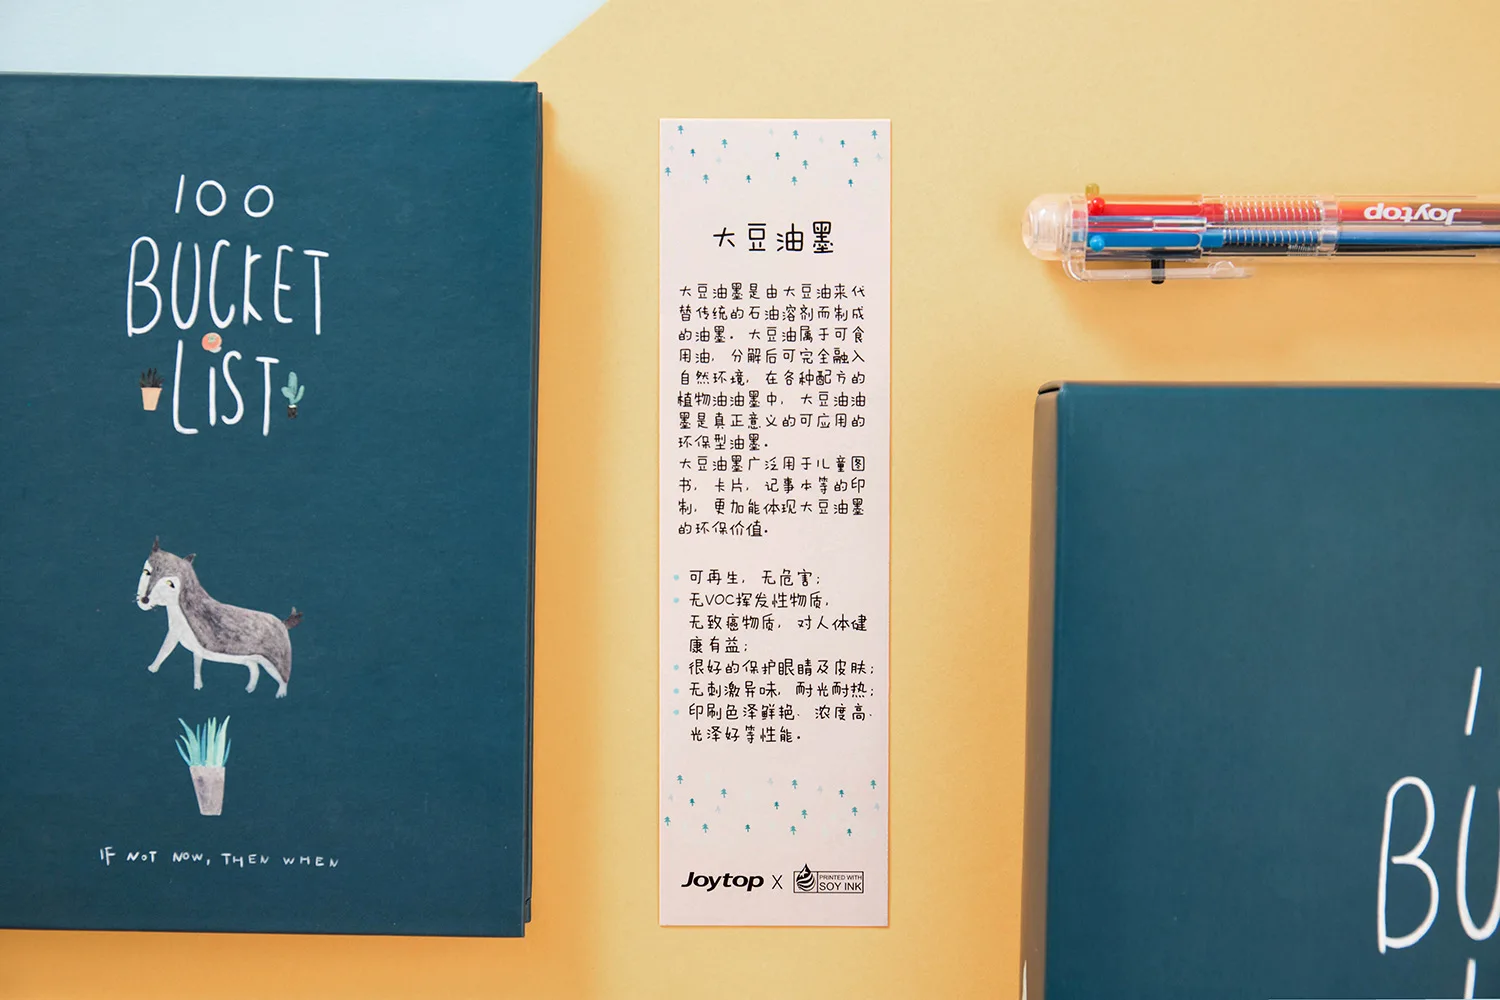 100
BUCKET
LIST
IF NOT NOW, THEN WHEN
大豆油墨
大豆油墨是由大豆油来代
替传统的石油溶剂而制成
的油墨。大豆油属于可食
用油，分解后可完全融入
自然环境，在各种配方的
植物油油墨中，大豆油油
墨是真正意义的可应用的
环保型油墨。
大豆油墨广泛用于儿童图
书，卡片，记事本等的印
制，更加能体现大豆油墨
的环保价值。
• 可再生，无危害；
• 无VOC挥发性物质，
无致癌物质，对人体健
康有益；
• 很好的保护眼睛及皮肤；
• 无刺激异味，耐光耐热；
• 印刷色泽鲜艳、浓度高、
光泽好等性能。
Joytop X PRINTED WITH
SOY INK
Joytop
1
BU